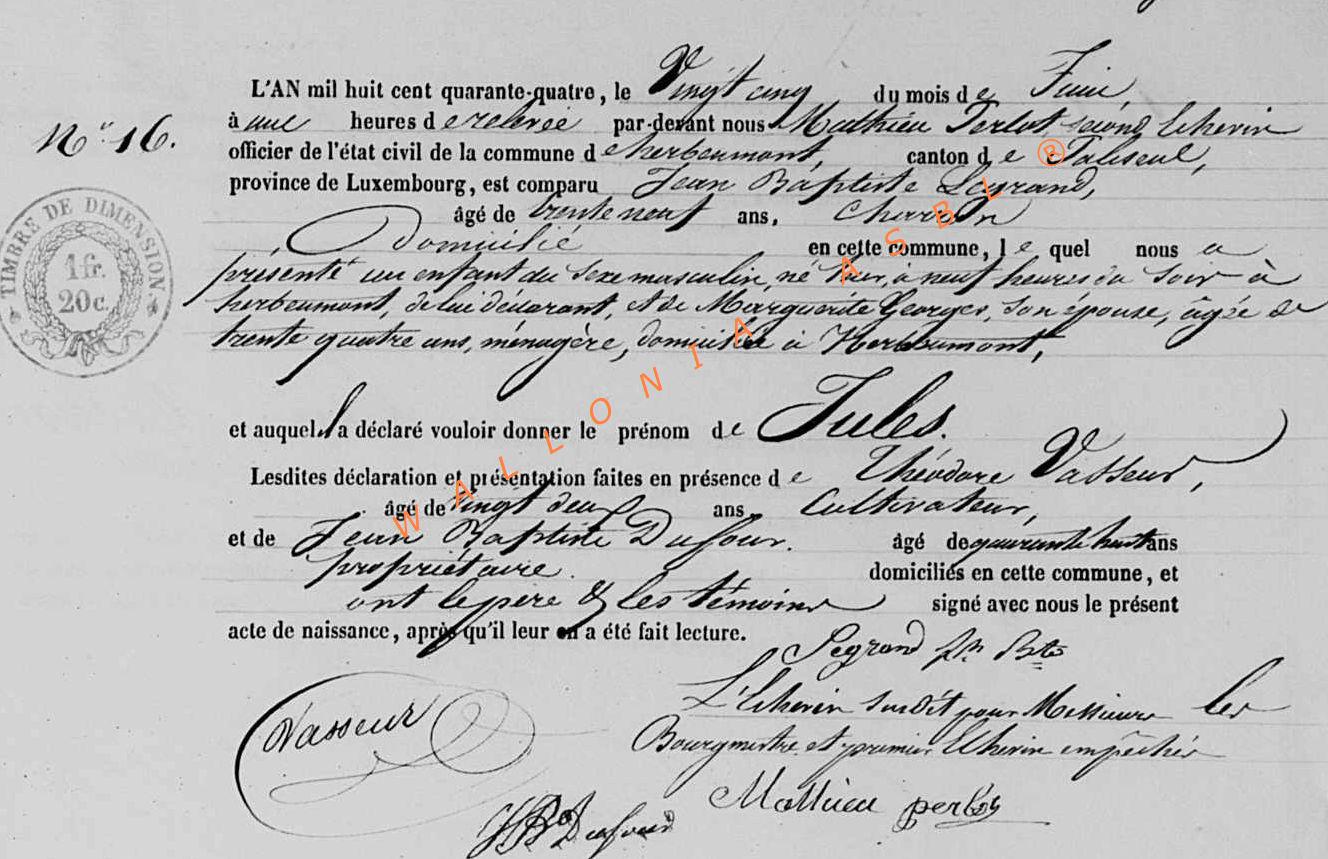 L'AN mil huit cent quarante-quatre, le Vingt cinq du mois de Juin,
N° 16.
à une heures de relevée par-devant nous Mathieu Perlot second Echevin
officier de l'état civil de la commune de herbeumont, canton de Paliseul,
province de Luxembourg, est comparu Jean Baptiste Legrand,
âgé de trente neuf ans, Charron
Domicilié en cette commune, le quel nous a
présenté un enfant du sexe masculin, né hier, à neuf heures du soir à
herbeumont, de lui déclarant, et de Marguerite Georges, son épouse, âgée de
trente quatre ans, ménagère, domiciliée à Herbeumont,
et auquel il a déclaré vouloir donner le prénom de Jules.
Lesdites déclaration et présentation faites en présence de Théodore Vasseur,
âgé de vingt deux ans Cultivateur,
et de Jean Baptiste Dufour. âgé de quarante huit ans
propriétaire. domiciliés en cette commune, et
ont le père & les témoins signé avec nous le présent
acte de naissance, après qu'il leur en a été fait lecture.
TIMBRE DE DIMENSION
1 fr.
20 c.
Legrand jn Bte
L'Echevin susdit pour Messieurs les
Bourgmestre et premier Echevin empêchés
Vasseur
Mathieu perlot
JBte Dufour
WALLONIA ASBL ®